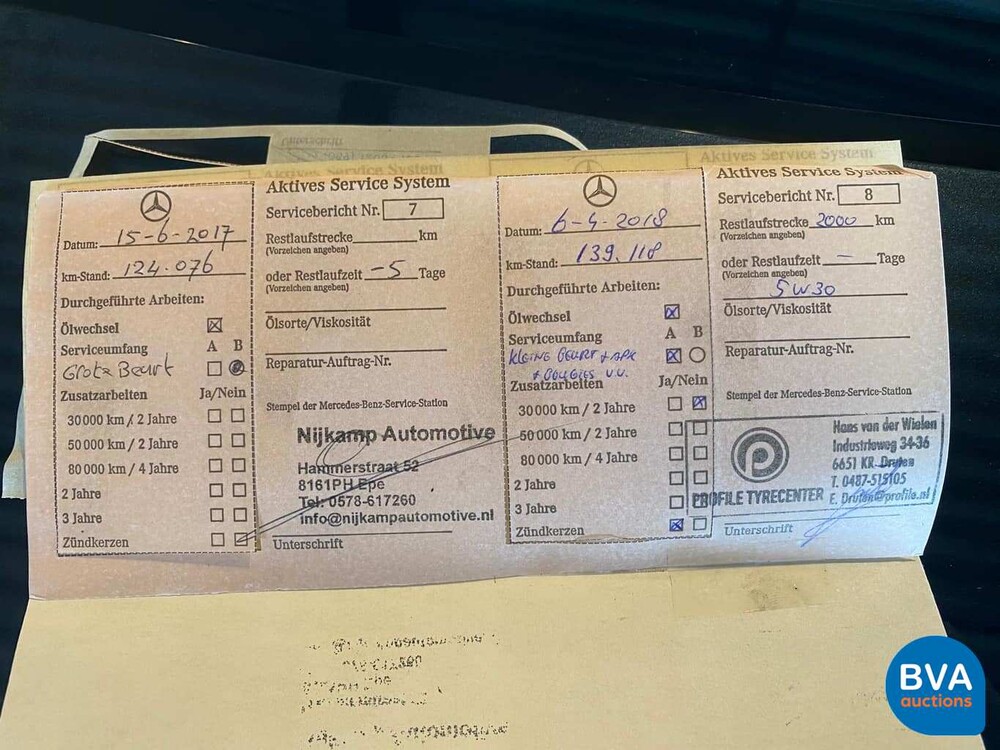 Aktives Service System
Servicebericht Nr. 7
Datum: 15-6-2017
km-Stand: 124.076
Restlaufstrecke km
(Vorzeichen angeben)
oder Restlaufzeit -5 Tage
(Vorzeichen angeben)
Durchgeführte Arbeiten:
Ölwechsel
Ölsorte/Viskosität
Serviceumfang A B
Grote Beurt
Reparatur-Auftrag-Nr.
Zusatzarbeiten Ja/Nein
30000 km / 2 Jahre
50000 km / 2 Jahre
80000 km / 4 Jahre
2 Jahre
3 Jahre
Zündkerzen
Stempel der Mercedes-Benz-Service-Station
Nijkamp Automotive
Hammerstraat 52
8161PH Epe
Tel: 0578-617260
info@nijkampautomotive.nl
Unterschrift
Aktives Service System
Servicebericht Nr. 8
Datum: 6-4-2018
km-Stand: 139.118
Restlaufstrecke 2000 km
(Vorzeichen angeben)
oder Restlaufzeit - Tage
(Vorzeichen angeben)
5W30
Durchgeführte Arbeiten:
Ölwechsel
Ölsorte/Viskosität
Serviceumfang A B
Kleine Beurt + APK
+ Bougies v.v.
Reparatur-Auftrag-Nr.
Zusatzarbeiten Ja/Nein
30000 km / 2 Jahre
50000 km / 2 Jahre
80000 km / 4 Jahre
2 Jahre
3 Jahre
Zündkerzen
Stempel der Mercedes-Benz-Service-Station
PROFILE TYRECENTER
Hans van der Wielen
Industrieweg 34-36
6651 KR Druten
T. 0487-515105
E. Druten@profile.nl
Unterschrift
BVA
auctions